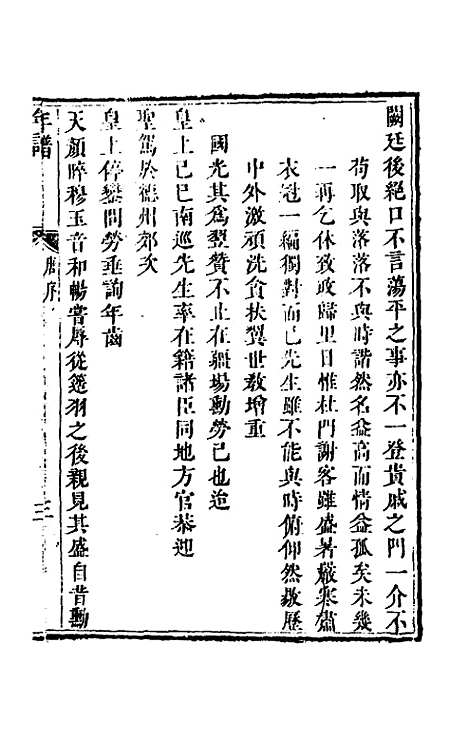 闕廷後絕口不言蕩平之事亦不一登貴戚之門一介不
苟取與落落不與時諧然名益高而情益孤矣未幾
一再乞休致政歸里日惟杜門謝客雖盛暑嚴寒肅
衣冠一編獨對而已先生雖不能與時俯仰然敭歷
中外激頑洗貪扶翼世敎增重
國光其爲翌贊不止在疆場勳勞已也迨
皇上己巳南巡先生率在籍諸臣同地方官恭迎
聖駕於德州郊次
皇上停鑾問勞垂詢年齒
天顏睟穆玉音和暢嘗厚從筵羽之後親見其盛自昔勳
年譜
序
三